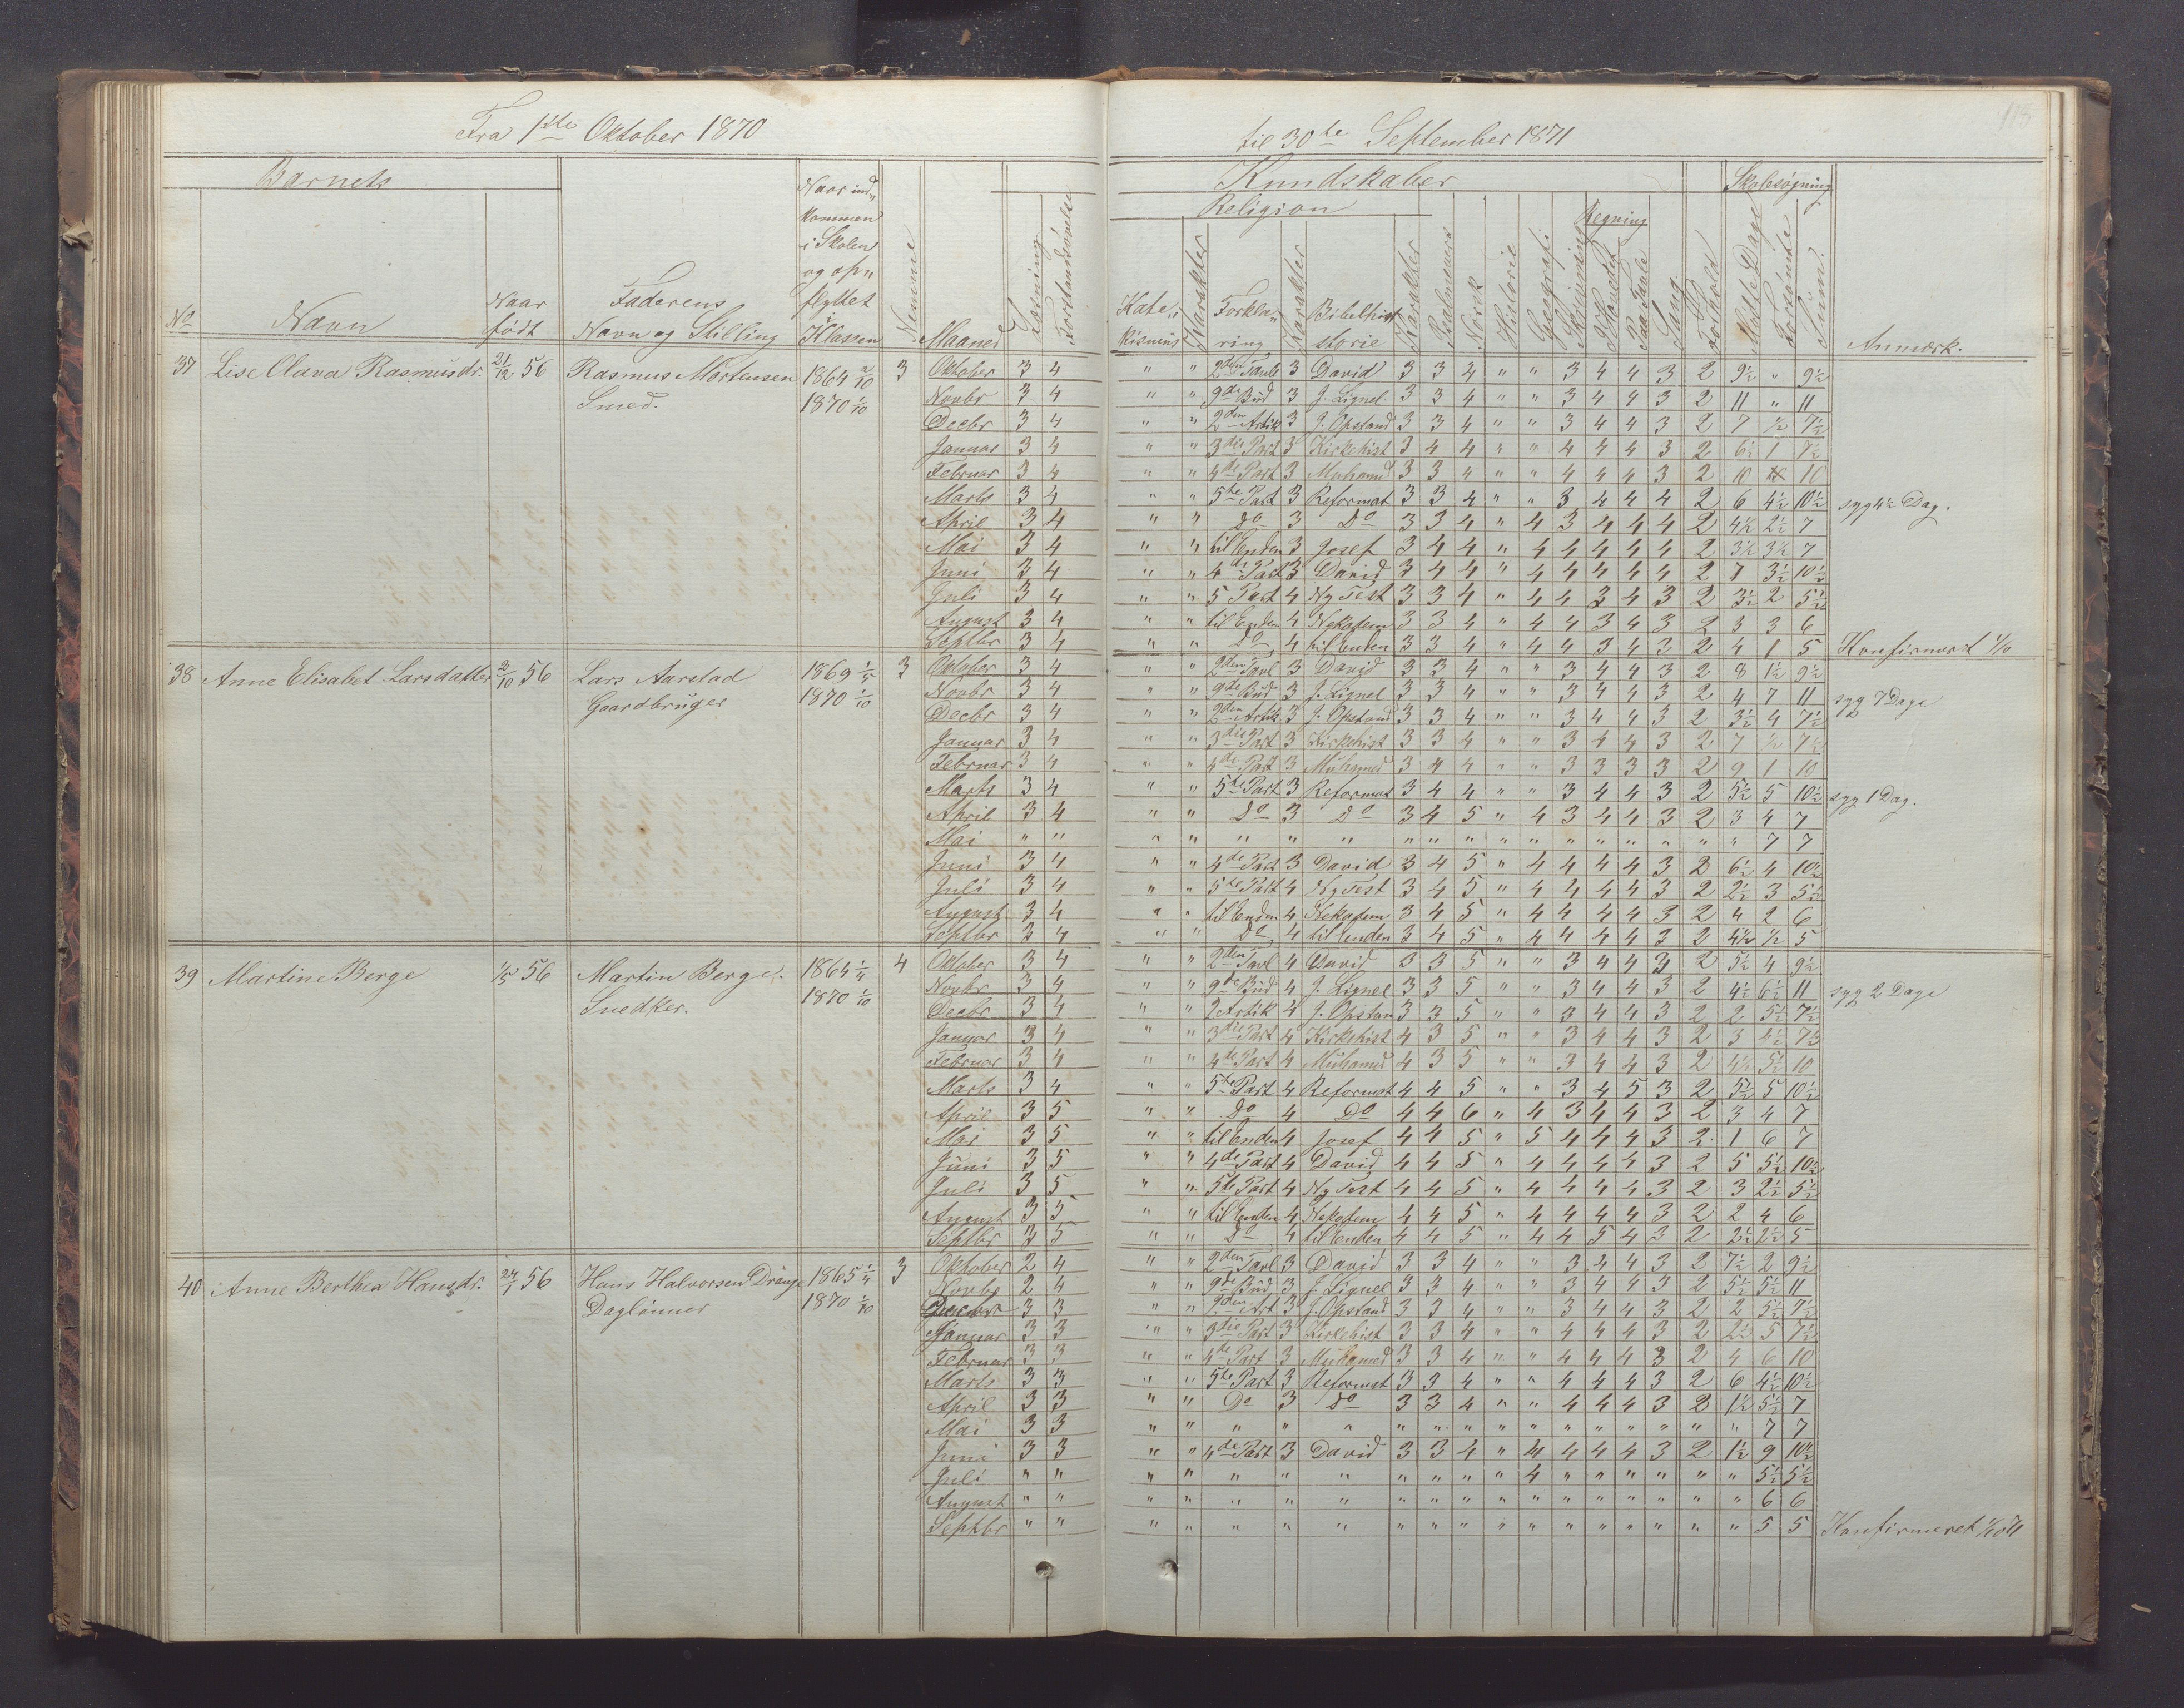 Fra 1ste Oktober 1870 til 30te September 1871
Barnets Kundskaber Skolesøgning
Religion Regning
No Navn Naar født Faderens Navn og Stilling Naar ind„ kommen i Skolen og op„ flyttet i Klassen Nemme Maaned Læsning Forstandsøvelse Kate„ kismus Karakter Forkla„ ring Karakter Bibelhist storie Karakter Norsk Historie Geografi Skrivning I Hovedet Paa Tavle Sang Forhold Mødte Dage Forsømte Sum. Anmærk.
37 Lise Olava Rasmusdr. 21/12 56 Rasmus Mortensen 1864 3 Oktober 3 4 " " 2den Tavle 3 David 3 3 4 " " 3 4 4 3 2 9½ " 9½
Smed. 1870 1/10 Novbr 3 4 " " 9de Bud 3 J. Lignel 3 3 4 " " 3 4 4 3 2 11 " 11
Decbr 3 4 " " 2den Artik 3 J. Opstand 3 3 4 " " 3 4 4 3 2 7 ½ 7½
Januar 3 4 " " 3die Part 3 Kirkehist 3 4 4 " " 4 4 4 3 2 6½ 1 7½
Februar 3 4 " " 4de Part 3 Muhamed 3 3 4 " " 4 4 4 3 2 10 10
Marts 3 4 " " 5te Part 3 Reformat 3 3 4 " " 3 4 4 4 2 6 4½ 10½ syg 4½ Dag.
April 3 4 " " Do 3 Do 3 3 4 " 4 3 4 4 4 2 4½ 2½ 7
Mai 3 4 " " til Enden 3 Josef 3 4 4 " 4 4 4 4 4 2 3½ 3½ 7
Juni 3 4 " " 4de Part 3 David 3 4 4 " 4 4 4 4 4 2 7 3½ 10½
Juli 3 4 " " 5 Part 4 Ny Test 3 3 4 " 4 4 3 4 3 2 3½ 2 5½
August 3 4 " " til Enden 4 Nekodem 3 3 4 " 4 4 3 4 3 2 3 3 6
Septbr 3 4 " " Do 4 til Enden 3 3 4 " 4 4 3 4 3 2 4 1 5 Konfirmeret 1/10
38 Anne Elisabet Larsdatter 2/10 56 Lars Aarstad 1869 1/5 3 Oktober 3 4 " " 2den Tavl 3 David 3 3 4 " " 3 4 4 3 2 8 1½ 9½
Gaardbruger 1870 1/10 Novbr 3 4 " " 9de Bud 3 J. Lignel 3 3 4 " " 3 4 4 3 2 4 7 11 syg 7 Dage
Decbr 3 4 " " 2den Artik 3 J. Opstand 3 3 4 " " 3 4 4 3 2 3½ 4 7½
Januar 3 4 " " 3die Part 3 Kirkehist 3 3 4 " " 3 4 4 3 2 7 ½ 7½
Februar 3 4 " " 4de Part 3 Muhamed 3 4 4 " " 3 3 3 3 2 9 1 10
Marts 3 4 " " 5te Part 3 Reformat 3 4 4 " " 3 4 4 3 2 5½ 5 10½ syg 1 Dag.
April 3 4 " " Do 3 Do 3 4 5 " 4 3 4 4 3 2 3 4 7
Mai " " " " " " " " " " " " " " " " " " 7 7
Juni 3 4 " " 4de Part 3 David 3 4 5 " 4 4 4 4 3 2 6½ 4 10½
Juli 3 4 " " 5te Part 4 Ny Test 3 4 5 " 4 4 4 4 3 2 2½ 3 5½
August 3 4 " " til Enden 4 Nekodem 3 4 5 " 4 4 4 4 3 2 4 2 6
Septbr 3 4 " " Do 4 til Enden 3 4 5 " 4 4 4 4 3 2 4½ ½ 5
39 Martine Berge 1/5 56 Martin Berge. 1864 4 Oktober 3 4 " " 2den Tavl 4 David 3 3 5 " " 3 4 4 3 2 5½ 4 9½
Snedker. 1870 1/10 Novbr 3 4 " " 9de Bud 4 J. Lignel 3 3 5 " " 3 4 4 3 2 4½ 6½ 11 syg 2 Dage
Decbr 3 4 " " 2 Artik 4 J. Opstan 3 3 5 " " 3 4 4 3 2 2 5½ 7½
Januar 3 4 " " 3die Part 4 Kirkehist 4 3 5 " " 3 4 4 3 2 3 4½ 7½
Februar 3 4 " " 4de Part 4 Muhamed 4 3 5 " " 3 4 4 3 2 4½ 5½ 10
Marts 3 4 " " 5te Part 4 Reformat 4 4 5 " " 3 4 5 3 2 5½ 5 10½
April 3 5 " " Do 4 Do 4 4 6 " 4 3 4 4 3 2 3 4 7
Mai 3 5 " " til Enden 4 Josef 4 4 5 " 5 4 4 4 3 2 1 6 7
Juni 3 5 " " 4de Part 4 David 4 4 5 " 4 4 4 4 3 2 5 5½ 10½
Juli 3 5 " " 5te Part 4 Ny Test 4 4 5 " 4 4 4 4 3 2 3 2½ 5½
August 3 5 " " til Enden 4 Nekodem 4 4 5 " 4 4 4 4 3 2 2 4 6
Septbr 3 5 " " Do 4 til Enden 4 4 5 " 4 4 5 4 3 2 2½ 2½ 5
40 Anne Berthea Hansdr. 24/1 56 Hans Halvorsen Drange 1865 1/4 3 Oktober 2 4 " " 2den Tavl 3 David 3 3 4 " " 3 4 4 3 2 7½ 2 9½
Daglønner 1870 1/10 Novbr 2 4 " " 9de Bud 3 J. Lignel 3 3 4 " " 3 4 4 3 2 5½ 5½ 11
Decbr 3 3 " " 2den Art 3 J. Opstand 3 3 4 " " 3 4 4 3 2 2 5½ 7½
Januar 3 3 " " 3die Part 3 Kirkehist 3 3 4 " " 4 4 4 3 2 2½ 5 7½
Februar 3 3 " " 4de Part 3 Muhamed 3 3 4 " " 4 4 4 3 2 4 6 10
Marts 3 3 " " 5te Part 3 Reformat 3 3 4 " " 4 4 4 3 2 6 4½ 10½
April 3 3 " " Do 3 Do 3 3 4 " " 4 4 4 3 2 1½ 5½ 7
Mai 3 3 " " " " " " " " " " " " " " " " 7 7
Juni 3 3 " " 4de Part 3 David 3 3 4 " 4 4 4 4 3 2 1½ 9 10½
Juli " " " " " " " " " " " 4 " " " " " " 5½ 5½
August " " " " " " " " " " " " " " " " " " 6 6
Septbr " " " " " " " " " " " " " " " " " " 5 5 Konfirmeret 1/10 71